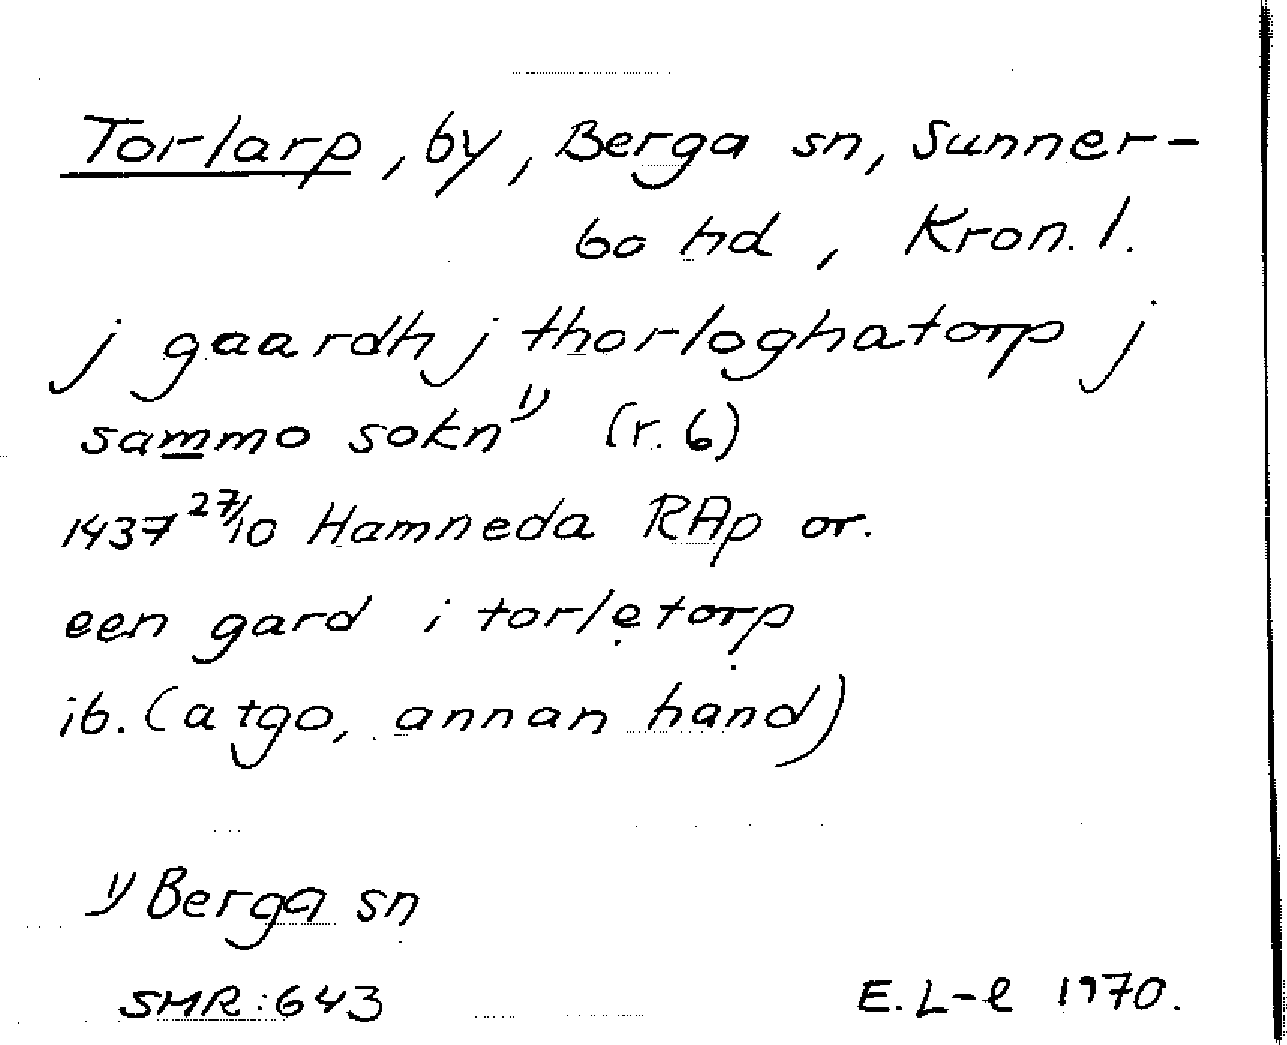 Torlarp, by, Berga sn, Sunner-
bo hd, Kron. l.
j gaardh j thorloghatorp j
sammo sokn 1) (r. 6)
1437 27/10 Hamneda RAp or.
een gard i torletorp
ib. (atgo, annan hand)
1) Berga sn
SMR:643
E. L-l 1970.